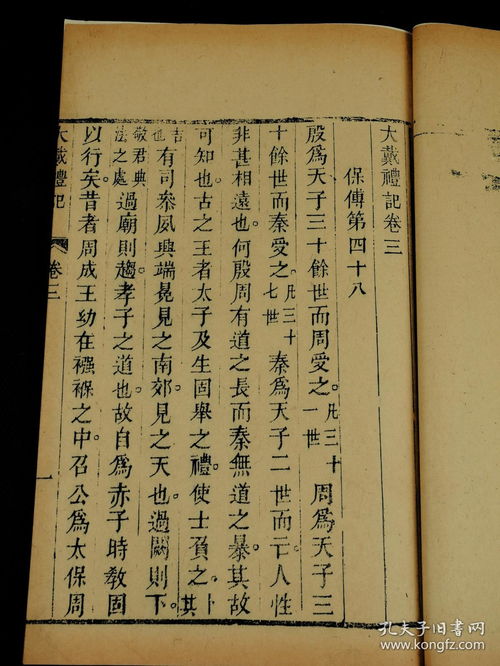 大戴禮記卷三
保傅第四十八
殷爲天子三十餘世而周受之凡三十一世周爲天子三
十餘世而秦受之凡三十七世秦爲天子二世而亡人性
非甚相遠也何殷周有道之長而秦無道之暴其故
可知也古之王者太子及生固舉之禮使士負之卜其
吉也有司叅夙興端冕見之南郊見之天也過闕則下
敬君典法之處過廟則趨孝子之道也故自爲赤子時教固
以行矣昔者周成王幼在襁褓之中召公爲太保周
大戴禮記 卷三 一
孔夫子旧书网
www.kongfz.com